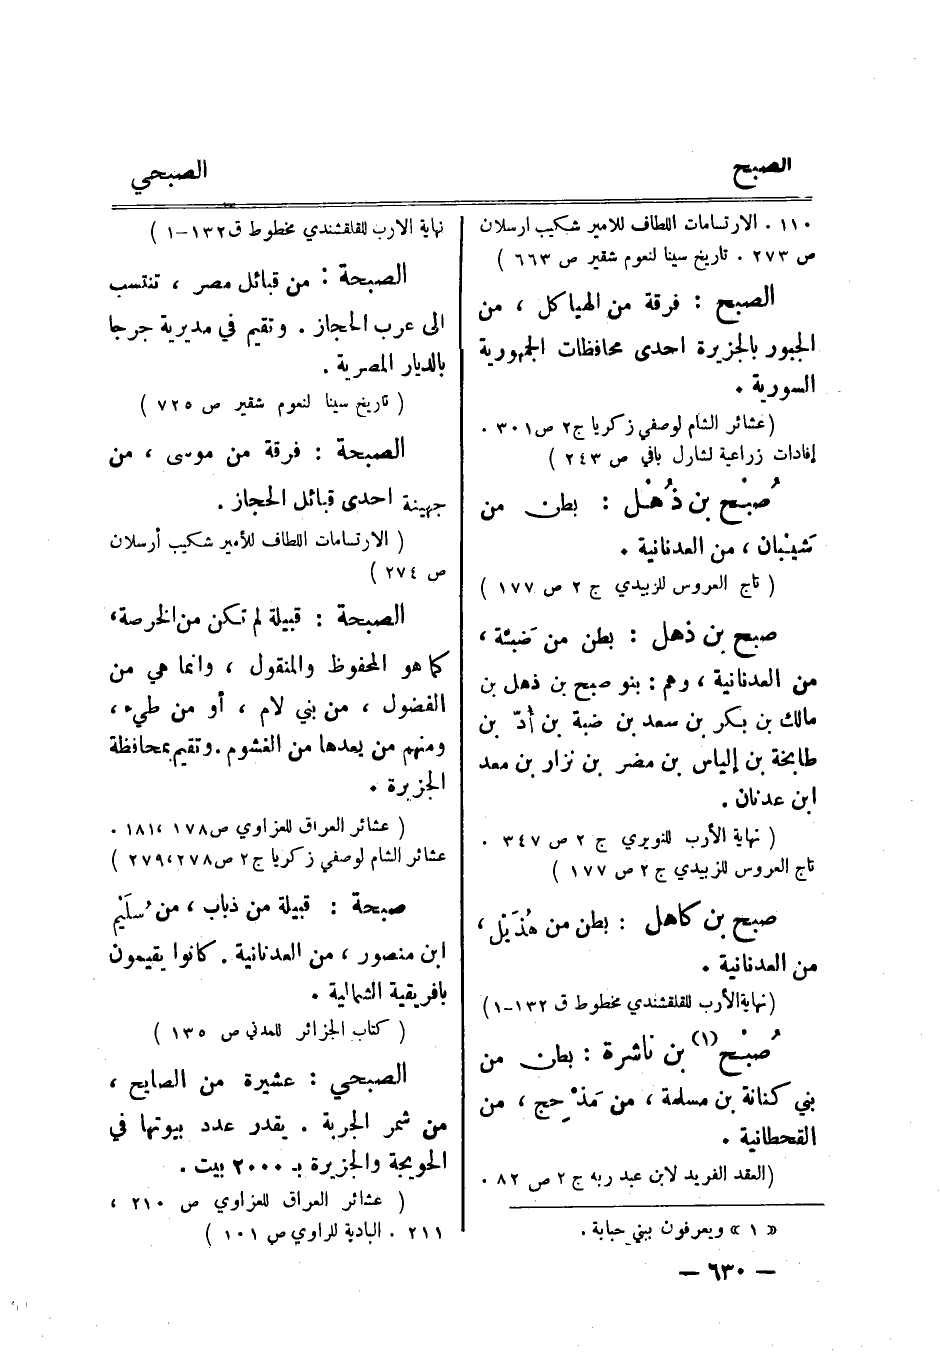 الصبح
الصبحي
١١٠ . الارتسامات اللطاف للامير شكيب ارسلان
ص ٢٧٣ . تاريخ سينا لنعوم شقير ص ٦٦٣ )
الصبح : فرقة من الهياكل ، من
الجبور بالجزيرة احدى محافظات الجمهورية
السورية .
(عشائر الشام لوصفي زكريا ج٢ ص٣٠١ .
إفادات زراعية لشارل باقي ص ٢٤٣ )
صُبْح بن ذُهْل : بطن من
شَيْبان ، من العدنانية .
( تاج العروس للزبيدي ج ٢ ص ١٧٧ )
صبح بن ذهل : بطن من ضَبَّة ،
من العدنانية ، وهم : بنو صبح بن ذهل بن
مالك بن بكر بن سعد بن ضبة بن أُدّ بن
طابخة بن إلياس بن مضر بن نزار بن معد
ابن عدنان .
( نهاية الأرب للنويري ج ٢ ص ٣٤٧ .
تاج العروس للزبيدي ج ٢ ص ١٧٧ )
صبح بن كاهل : بطن من هُذَيْل ،
من العدنانية .
(نهاية الأرب للقلقشندي مخطوط ق ١٣٢-١)
صُبْح (١) بن ناشرة : بطن من
بني كنانة بن مسلمة ، من مَذْحِج ، من
القحطانية .
(العقد الفريد لابن عبد ربه ج ٢ ص ٨٢ .
« ١ » ويعرفون ببني حبابة .
نهاية الارب للقلقشندي مخطوط ق١٣٢-١ )
الصبحة : من قبائل مصر ، تنتسب
الى عرب الحجاز . وتقيم في مديرية جرجا
بالديار المصرية .
( تاريخ سينا لنعوم شقير ص ٧٢٥ )
الصبحة : فرقة من موسى ، من
جهينة احدى قبائل الحجاز .
( الارتسامات اللطاف للأمير شكيب أرسلان
ص ٢٧٤ )
الصبحة : قبيلة لم تكن من الخرصة،
كما هو المحفوظ والمنقول ، وانما هي من
الفضول ، من بني لام ، أو من طيء ،
ومنهم من يعدها من الغشوم . وتقيم بمحافظة
الجزيرة .
( عشائر العراق للعزاوي ص١٧٨ ،١٨١ .
عشائر الشام لوصفي زكريا ج٢ ص٢٧٨،٢٧٩ )
صبحة : قبيلة من ذباب ، من سُلَيْم
ابن منصور ، من العدنانية . كانوا يقيمون
بافريقية الشمالية .
( كتاب الجزائر للمدني ص ١٣٥ )
الصبحي : عشيرة من الصايح ،
من شمر الجربة . يقدر عدد بيوتها في
الحويجة والجزيرة بـ ٢٠٠٠ بيت .
( عشائر العراق للعزاوي ص ٢١٠ ،
٢١١ . البادية للراوي ص ١٠١ )
— ٦٣٠ —